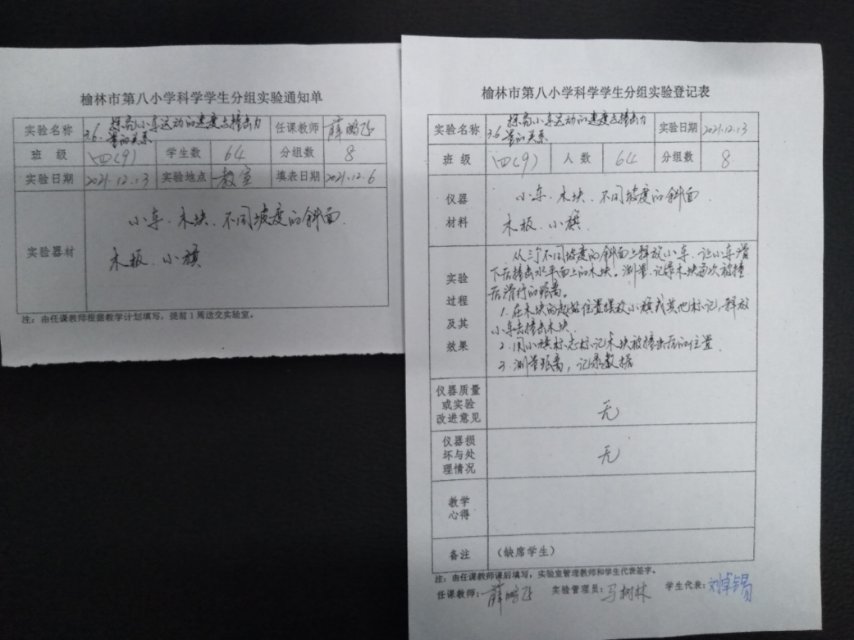 榆林市第八小学科学学生分组实验通知单
实验名称 3.6. 探究小车运动的速度与撞击力量的关系 任课教师 薛鹏飞
班 级 四(9) 学生数 64 分组数 8
实验日期 2021.12.13 实验地点 教室 填表日期 2021.12.6
实验器材
小车、木块、不同坡度的斜面、
木板、小旗
注:由任课教师根据教学计划填写,提前1周送交实验室。
榆林市第八小学科学学生分组实验登记表
实验名称 3.6 探究小车运动的速度与撞击力量的关系 实验日期 2021.12.13
班 级 四(9) 人 数 64 分组数 8
仪器材料
小车、木块、不同坡度的斜面、
木板、小旗
实验过程及其效果
从三个不同坡度的斜面上释放小车,让小车滑
下后撞击水平面上的木块。测量、记录木块每次被撞
后滑行的距离。
1.在木块的起始位置摆放小旗或其他标记,释放
小车去撞击木块
2.用小旗标志标记木块被撞击后的位置
3.测量距离,记录数据
仪器质量或实验改进意见 无
仪器损坏与处理情况 无
教学心得
备注 (缺席学生)
注:由任课教师课后填写,实验室管理教师和学生代表签字。
任课教师:薛鹏飞 实验管理员:马树林 学生代表: